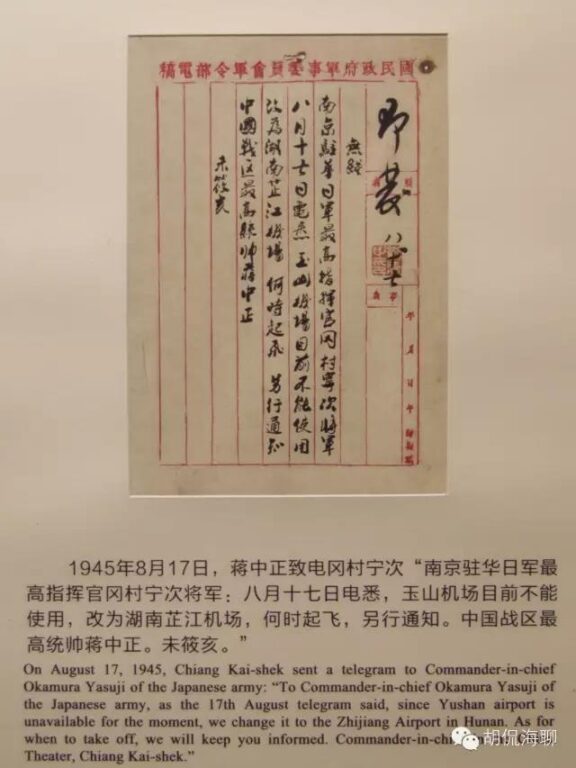 國民政府軍事委員會軍令部電稿
即發
八十七
無綫
南京駐華日軍最高指揮官冈村寧次將軍
八月十七日電悉 玉山机場目前不能使用
改為湖南芷江机場 何時起飛 另行通知
中國战区最高統帅蔣中正
未筱亥
1945年8月17日，蒋中正致电冈村宁次“南京驻华日军最
高指挥官冈村宁次将军：八月十七日电悉，玉山机场目前不能
使用，改为湖南芷江机场，何时起飞，另行通知。中国战区最
高统帅蒋中正。未筱亥。”
On August 17, 1945, Chiang Kai-shek sent a telegram to Commander-in-chief
Okamura Yasuji of the Japanese army: “To Commander-in-chief Okamura Yasuji of
the Japanese army, as the 17th August telegram said, since Yushan airport is
unavailable for the moment, we change it to the Zhijiang Airport in Hunan. As for
when to take off, we will keep you informed. Commander-in-chi
Theater, Chiang Kai-shek.”
胡侃海聊